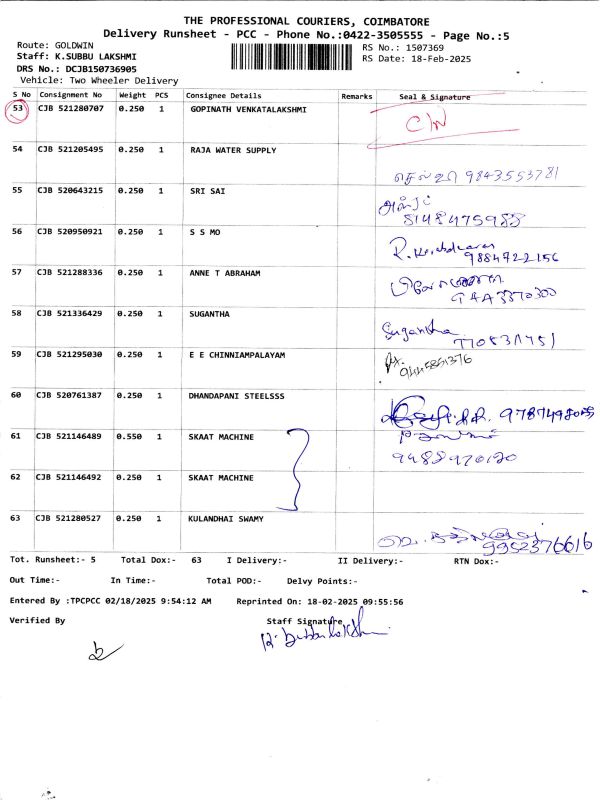 THE PROFESSIONAL COURIERS, COIMBATORE
Delivery Runsheet - PCC - Phone No.:0422-3505555 - Page No.:5
Route: GOLDWIN
RS No.: 1507369
Staff: K.SUBBU LAKSHMI
RS Date: 18-Feb-2025
DRS No.: DCJB150736905
Vehicle: Two Wheeler Delivery
S No Consignment No Weight PCS Consignee Details Remarks Seal & Signature
53 CJB 521280707 0.250 1 GOPINATH VENKATALAKSHMI
54 CJB 521205495 0.250 1 RAJA WATER SUPPLY 9843553781
55 CJB 520643215 0.250 1 SRI SAI
8148475988
56 CJB 520950921 0.250 1 S S MO
9884922156
57 CJB 521288336 0.250 1 ANNE T ABRAHAM
58 CJB 521336429 0.250 1 SUGANTHA Sugantha
59 CJB 521295030 0.250 1 E E CHINNIAMPALAYAM
60 CJB 520761387 0.250 1 DHANDAPANI STEELSSS
61 CJB 521146489 0.550 1 SKAAT MACHINE
9488970120
62 CJB 521146492 0.250 1 SKAAT MACHINE
63 CJB 521280527 0.250 1 KULANDHAI SWAMY
9952376616
Tot. Runsheet:- 5 Total Dox:- 63 I Delivery:- II Delivery:- RTN Dox:-
Out Time:- In Time:- Total POD:- Delvy Points:-
Entered By :TPCPCC 02/18/2025 9:54:12 AM Reprinted On: 18-02-2025 09:55:56
Verified By Staff Signature